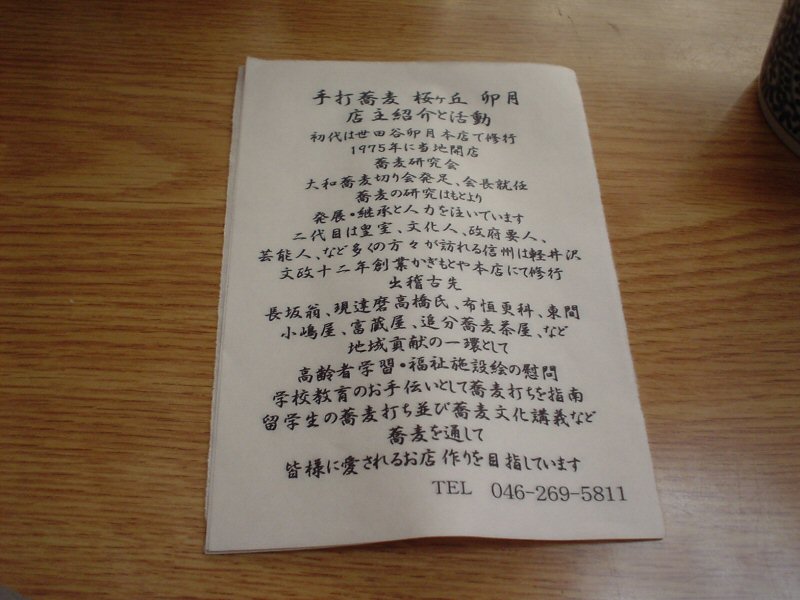 手打蕎麦 桜ヶ丘 卯月
店主紹介と活動
初代は世田谷卯月本店で修行
1975年に当地開店
蕎麦研究会
大和蕎麦切り会発足、会長就任
蕎麦の研究はもとより
発展・継承と人力を注いでいます
二代目は皇室、文化人、政府要人、
芸能人、など多くの方々が訪れる信州は軽井沢
文政十二年創業かぎもとや本店にて修行
出稽古先
長坂翁、現達磨高橋氏、布恒更科、東間
小嶋屋、富蔵屋、追分蕎麦茶屋、など
地域貢献の一環として
高齢者学習・福祉施設絵の慰問
学校教育のお手伝いとして蕎麦打ちを指南
留学生の蕎麦打ち並び蕎麦文化講義など
蕎麦を通して
皆様に愛されるお店作りを目指しています
TEL 046-269-5811